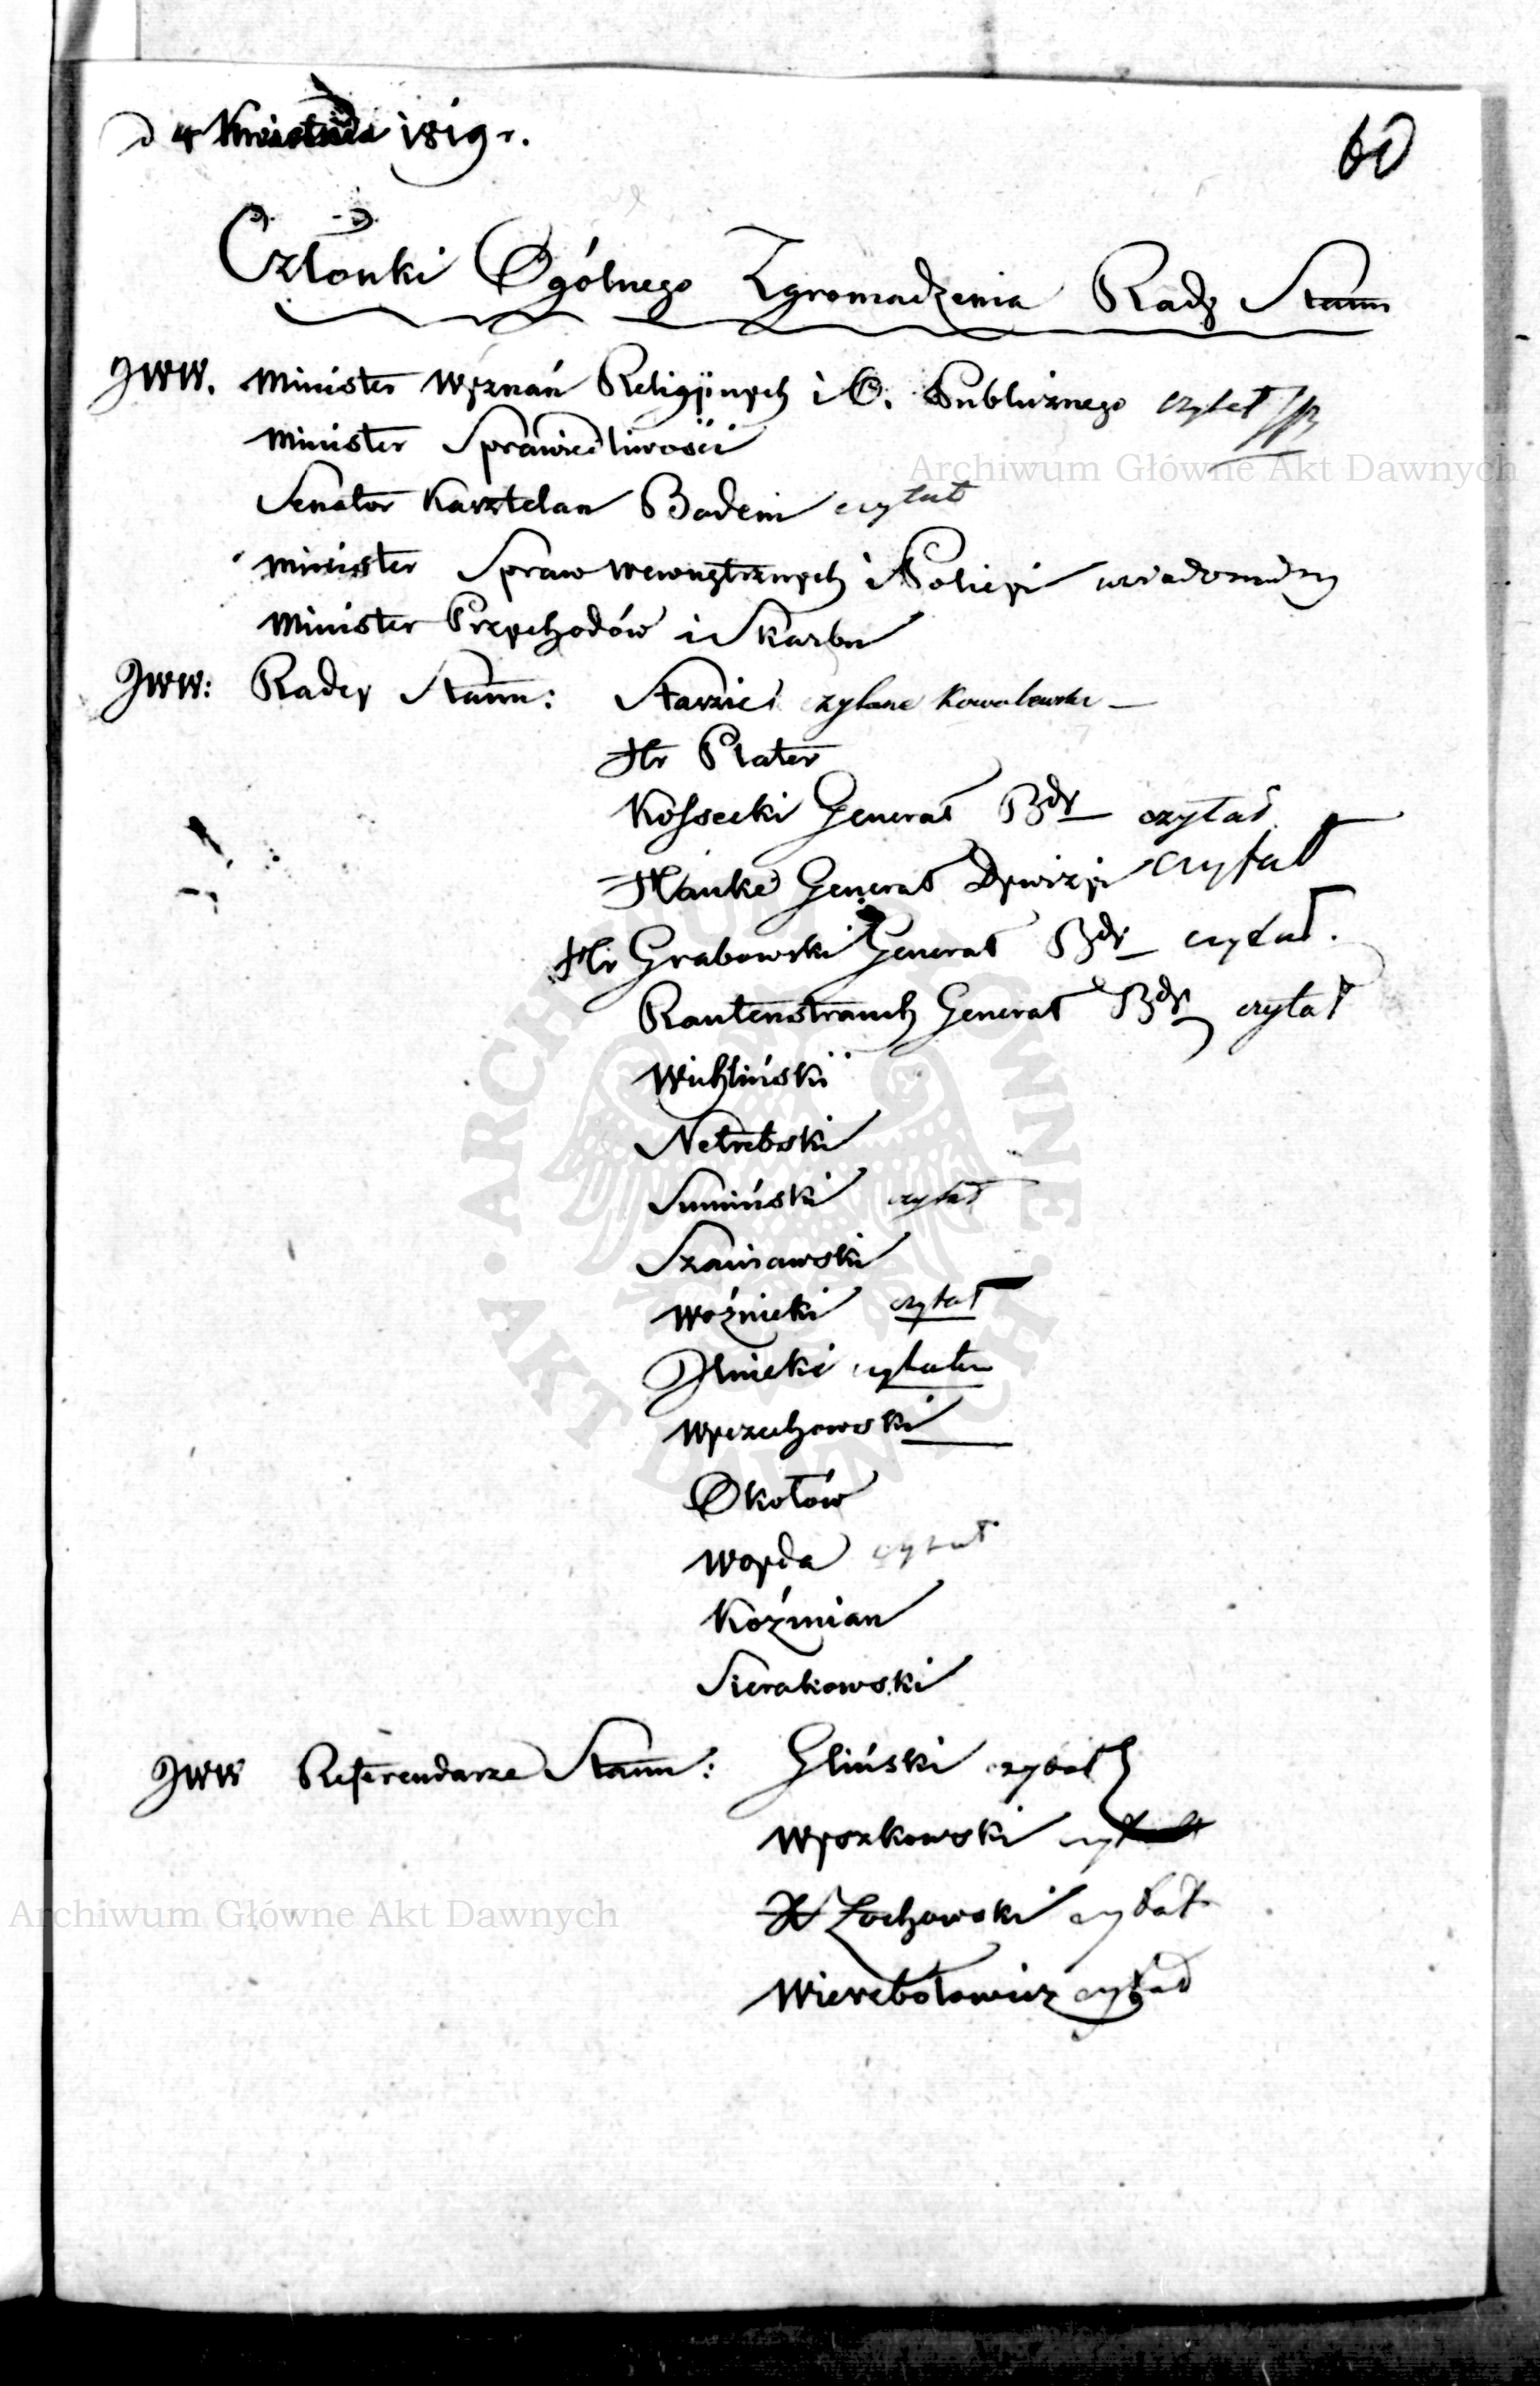 d 4 Kwietnia 1819 r.
60
Członki Ogólnego Zgromadzenia Rady Stanu
JWW. Minister Wyznań Religijnych i O. Publicznego czytał
Minister Sprawiedliwości
Archiwum Główne Akt Dawnych
Senator Kasztelan Badeni czytał
Minister Spraw Wewnętrznych i Policyi wiadomy
Minister Przychodów i Skarbu
JWW: Radcy Stanu: Staszic czytane Kowalewski
Hr Plater
Kossecki Generał Bdy czytał
Hauke Generał Dywizyi czytał
Hr Grabowski Generał Bdy czytał.
Rautenstrauch Generał Bdy czytał
Wichliński
Netrebski
Sumiński czytał
Szaniawski
Woźnicki czytał
Ilnicki czytałem
Wyczechowski
Okołów
Woyda czytał
Koźmian
Sierakowski
JWW Referendarze Stanu: Gliński czytał
Wyszkowski czytał
X Żochowski czytał
Archiwum Główne Akt Dawnych
Wierzbołowicz czytał
ARCHIWUM GŁÓWNE AKT DAWNYCH